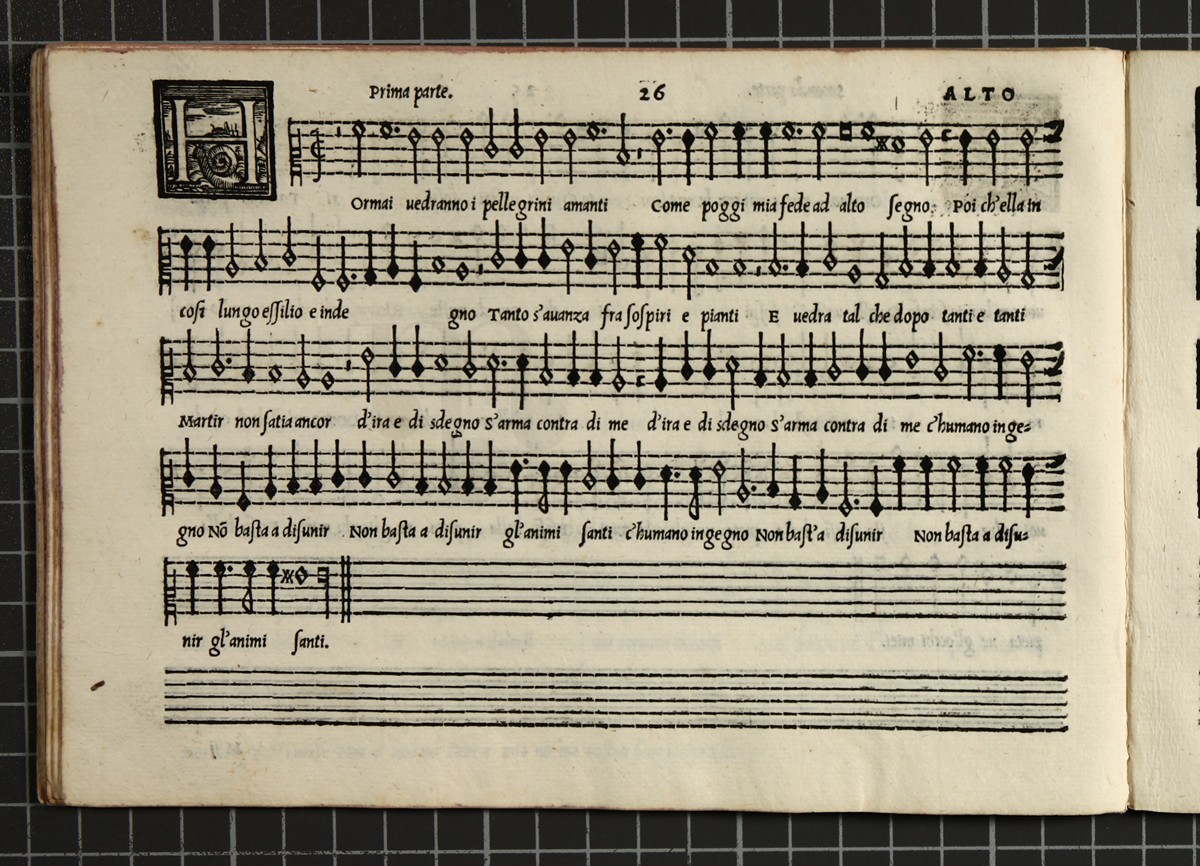 Prima parte. 26 ALTO
HOrmai uedranno i pellegrini amanti Come poggi mia fede ad alto segno: Poi ch'ella in
cosi lungo essilio e inde gno Tanto s'auanza fra sospiri e pianti E uedra tal che dopo tanti e tanti
Martir non satia ancor d'ira e di sdegno S'arma contra di me d'ira e di sdegno S'arma contra di me c'humano inge=
gno Nō basta a disunir Non basta a disunir gl'animi santi c'humano ingegno Non bast'a disunir Non basta a disu=
nir gl'animi santi.